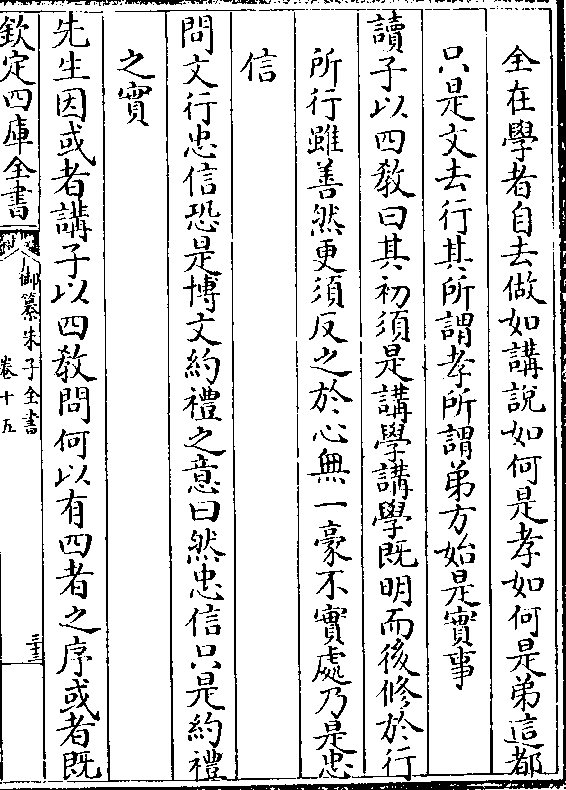 全在學者自去做如講說如何是孝如何是弟這都
只是文去行其所謂孝所謂弟方始是實事
讀子以四教曰其初須是講學講學既明而後修於行
所行雖善然更須反之於心無一豪不實處乃是忠
信
問文行忠信恐是博文約禮之意曰然忠信只是約禮
之實
先生因或者講子以四教問何以有四者之序或者既
欽定四庫全書
御纂朱子全書
卷十五
三十三